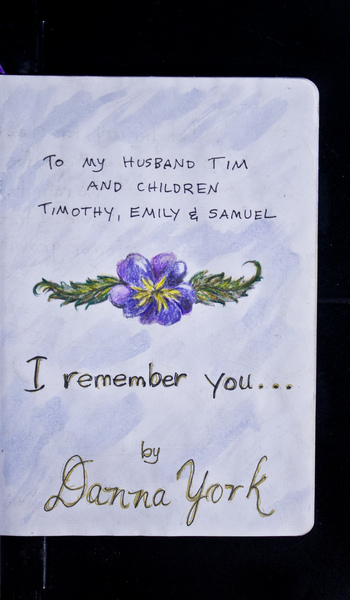 To my HUSBAND TIM
AND CHILDREN
TIMOTHY, EMILY & SAMUEL
I remember you...
by
Danna York